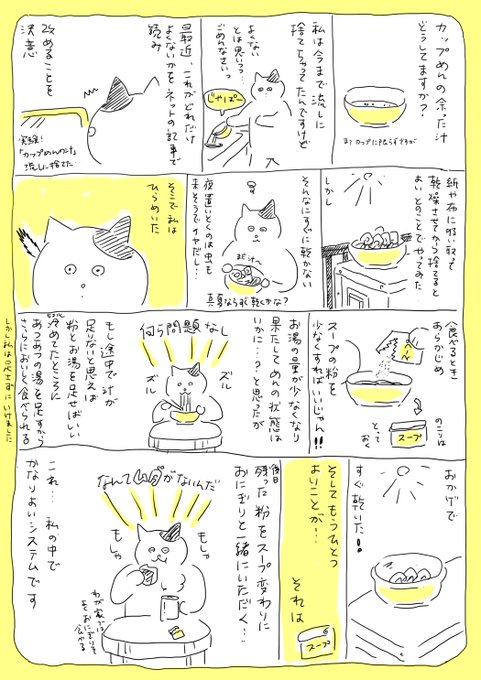 カップめんの余った汁
どうしてますか?
まァカップに限らずですが
私は今まで流しに
捨てちゃってたんですけど
よくない
とは思いつつ
ごめんなさいっ
じゃばー
最近、これがどれだけ
よくないかをネットの記事で
読み
改めることを
決意
実録!
「カップめんの汁」
流しに捨てた
紙や布に吸い取って
乾燥させてから捨てると
よい とのことでやってみた
しかし
そんなにすぐに乾かない
まだ汁〜
真夏ならすぐ乾くかな?
夜置いとくのは虫も
来そうでイヤだし…
そこで私は
ひらめいた
食べるとき
あらかじめ
スープの粉を
少なくすればいいじゃん!!
のこりは
とって
おく
スープ
お湯の量が少なくなり
果たしてめんの状態は
いかに…?と思ったが
何ら問題なし
ズル
ズル
もし途中で汁が
足りないと思えば
粉とお湯を足せばいい
冷めてたところに
あつあつの湯を足すから
さらにおいしく食べられる
しかし私は足さずにいけました
おかげで
すぐ乾いた!!
そしてもうひとつ
よいことが…
それは
スープ
後日
残った粉をスープ変わりに
おにぎりと一緒にいただく…
なんてムダがないんだ
もしゃ
もしゃ
これ… 私の中で
かなりよいシステムです